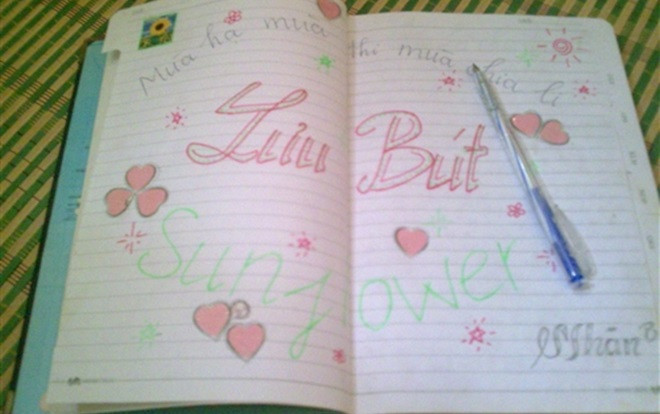 Mùa hạ mùa thi mùa chia li
Lưu Bút
Sunflower
Nhân